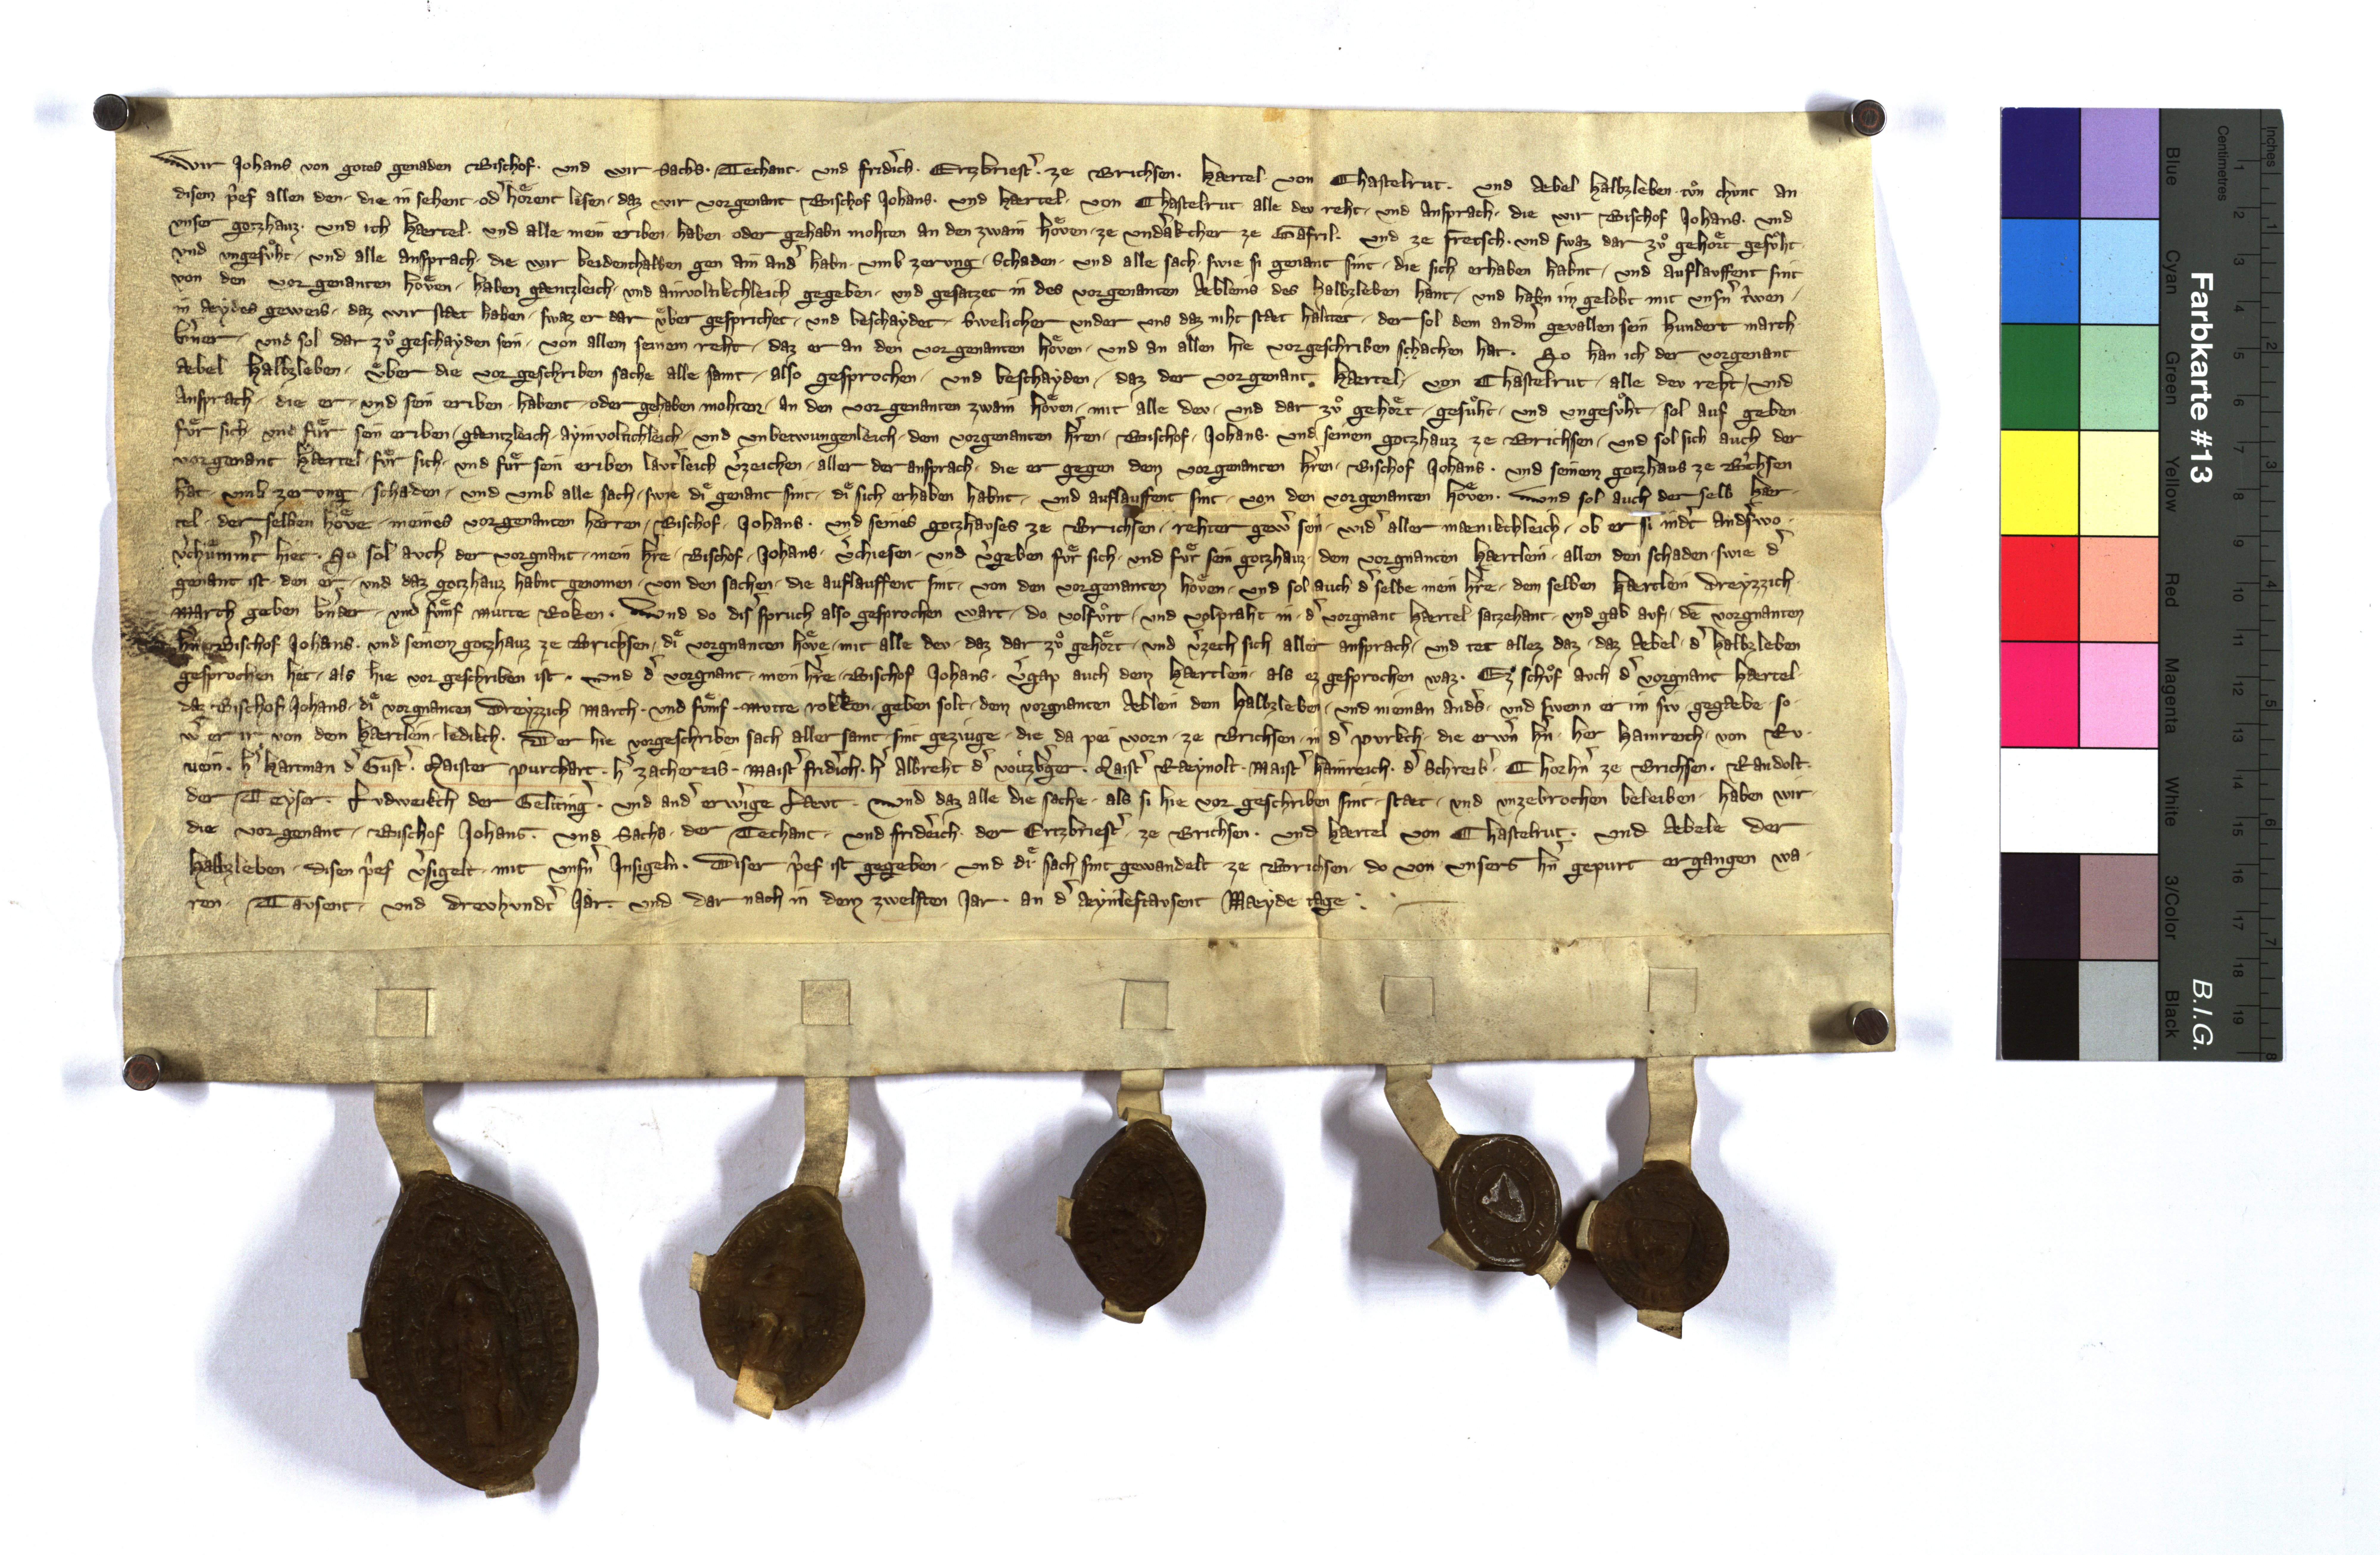 Wir Johans von gotes genaden Bischof · und wir Sachs · Techant · und fridrich · Ertzbriest̄ · ze Brichsen · Hærtel von Chastelrut · und Aebel Halbzleben tůn chunt an
disem p̄ef allen den · die in sehent · od̄ hỏrent lesen · daz wir vorgenant Bischof Johans · und Hærtel · von Chastelrut alle dev reht · und Ansprach · die wir Bischof Johans · und
unser gotzhauz · und ich Hærtel · und alle mein eriben · haben oder gehabn mohten an den zwain hỏven · ze ze Gafril · und ze fretsch · und swaz dar zů gehỏrt gesůht ·
und ungesůht · und alle ansprach · die wir beidenthalben gen ain and̄ habn · umb zerung · Schaden · und alle sach · swie si genant sint · die sich erhaben habnt · und auflauffent sint
von den vorgenanten hỏven · haben gæntzleich · und ainvoltikchleich gegeben · und gesatzet in des vorgenanten Aebleins des Halbzleben hant · und habn im gelobt mit unsn̄ t̄wen ·
in aydes geweis · daz wir stæt haben · swaz er dar ůber gesprichet · und beschaydet · Swelicher under uns daz niht stæt haltet · der sol dem andm̄ gevallen sein hundert march
b̄ner · und sol dar zů geschayden sein · von allem seinem reht · daz er an den vorgenanten hỏven · und an allen hie vorgeschriben schachen hat · So han ich der vorgenant
Aebel Halbzleben · ůber die vorgeschriben sache alle samt · also gesprochen · und beschayden · daz der vorgenant · Hærtel · von Chastelrut · alle dev reht · und
Ansprach · die er · und sein eriben · habent · oder gehaben mohten · an den vorgenanten zwain hỏven · mit alle dev · und dar zů gehỏrt · gesůht · und ungesůht · sol auf geben
fůr sich · und fůr sein eriben · gæntzleich · ayinvoltichleich · und unbetwungenleich · dem vorgenanten hr̄en · Bischof · Johans · und seinem gotzhauz ze Brichsen · und sol sich auch der
vorgenant Hærtel · fůr sich · und fůr sein eriben laut̄leich v̄zeichen · aller der ansprach · die er gegen dem vorgenanten hr̄en · Bischof Johans · und seinem gotzhaus ze B̄chsen
hat · umb zerung · schaden · und umb alle sach · swie dỉ genant sint · dỉ sich erhaben habnt · und auflauffent sint · von den vorgenanten hỏven · Und sol auch der selb Hær
tel · der selben hỏve · meines vorgenanten herren · Bischof · Johans · und seines gotzhauses ze Brichsen · rehter gew̄ sein · wid̄ aller mænikchleich · ob er si ind̄t andswo ·
v̄chůmm̄t hiet · So sol auch der vorgnant · mein hr̄e · Bischof · Johans · v̄chiesen · und v̄geben fůr sich · und fůr sein gotzhauz · dem vorgnanten Hærtlein · allen den schaden · swie d̄
genant ist · den er · und daz gotzhauz habnt genomen · von den sachen · die auflauffent sint · von den vorgenanten hỏven · und sol auch d̄ selbe mein hr̄e · dem selben Hærtlein dreyzzich ·
March geben b̄ner · und fůmf mutte Roken · Und do dis̄ spruch also gesprochen wart · do volfůrt · und volpraht in · d̄ vorgnant Hærtel satzehant · und gab auf · dē vorgnanten
hn̄ Bischof Johans · und seinem gotzhauz ze Brichsen · dỉ vorgnanten hỏve · mit alle dev · daz dar zů gehỏrt · und v̄zech sich aller ansprach · und tet allez daz · daz Aebel · d̄ halbzleben
gesprochen het · als hie vor geschriben ist · Und d̄ vorgnant · mein hr̄e · Bischof Johans · v̄gap auch dem Hærtlein · als ez gesprochen waz · Ez schůf auch d̄ vorgnant Hærtel ·
daz Bischof Johans · dỉ vorgnanten Dreyzzich March · und fůmf · Mutte rokken · geben solt · dem vorgnanten Aeblein dem Halbzleben · und nieman anders · und swenn er im sev · gegæbe · so ·
w̄ er ir von dem Hærtlein · ledikch · Der hie vorgeschriben sach aller samt · sint geziuge · die da pei worn · ze Brichsen · in d̄ purkch · die erwn̄ hn̄ · her Hainreich · von Ru
vein · h̄ Hartman d̄ Gust̄ · Maister purchart · h̄ zachereis · Maist̄ fridrich · h̄ Albreht d̄ · Maist̄ Raeynolt · Maist̄ hainreich · d̄ Schreib̄ · Chorhn̄ ze Brichsen · Randolt ·
der Teyser · Ludweikch der Geltinḡ · und and̄ erwīge Læut · Und daz alle die sache · als si hie vor geschriben sint · stæt · und unzebrochen beleiben · haben wir ·
die vorgenant · Bischof Johans · und Sachs · der Techant · und fridreich · der Ertzbriest̄ · ze Brichsen · und Hærtel von Chastelrut · und Aebele der
Halbzleben · disen p̄ef v̄sigelt · mit unsn̄ Insigeln · Diser p̄ef ist gegeben · und dỉ sach sint gewandelt ze Brichsen · do von unsers hn̄ gepurt ergangen wa ·
ren · Tausent · und dreuhundt̄ Jar · und dar nach in dem zwelften Jar · an d̄ aeyinleftausent Maeyde tage ·
Farbkarte #13
B.I.G.
Inches
Centimetres
Blue
Cyan
Green
Yellow
Red
Magenta
White
3/Color
Black
1 2 3 4 5 6 7 8 9 10 11 12 13 14 15 16 17 18 19
1 2 3 4 5 6 7 8